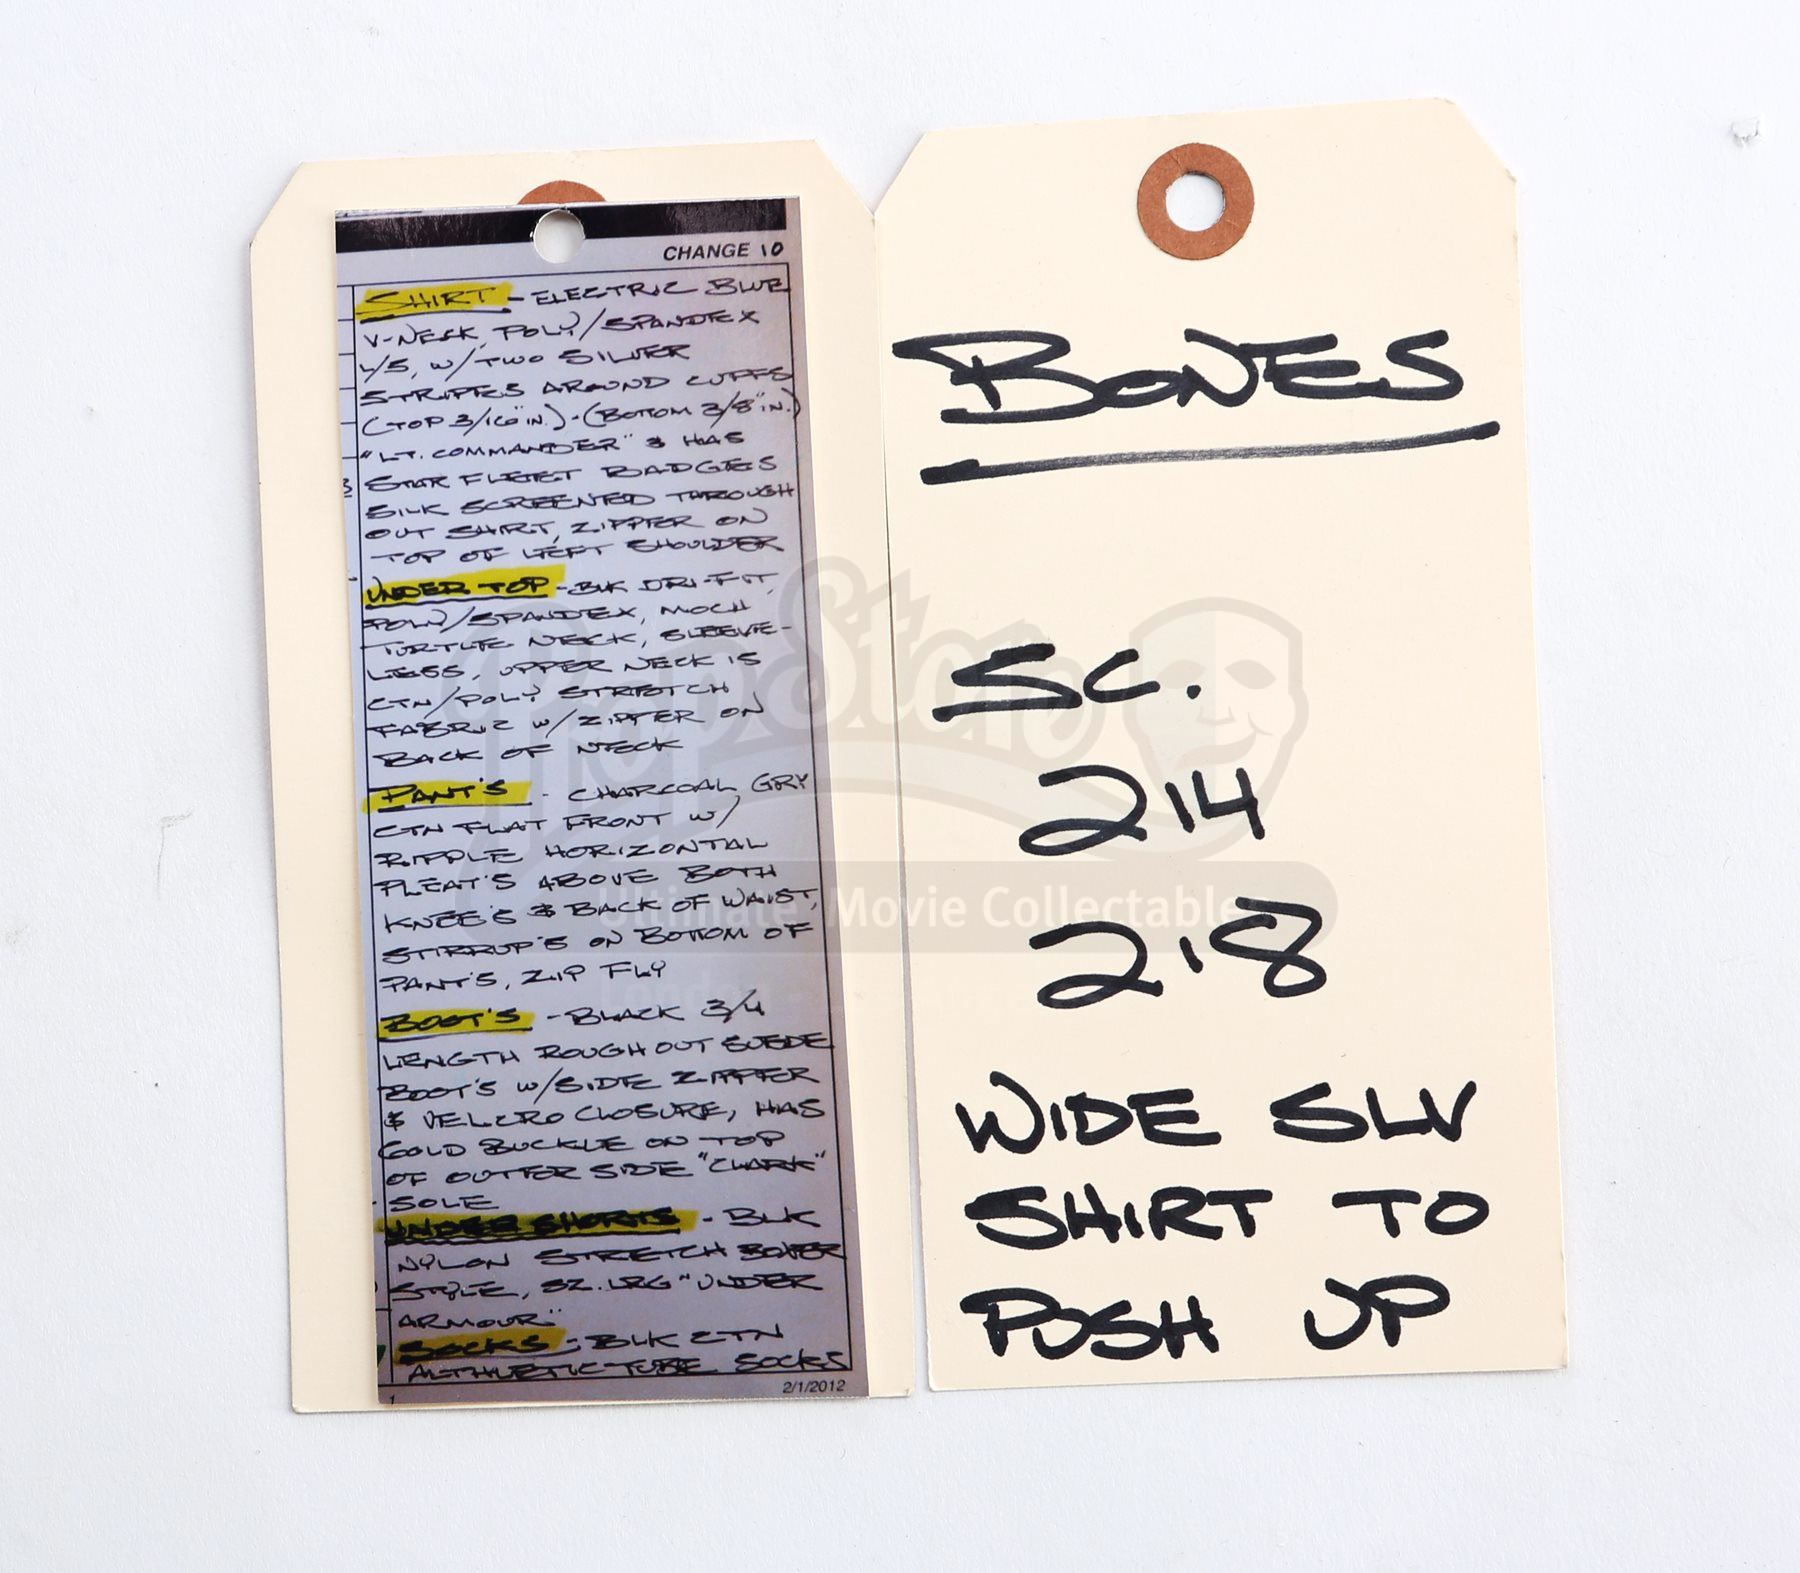 CHANGE 10
SHIRT - ELECTRIC BLUE
V-NECK, POLY/SPANDEX
L/S, W/ TWO SILVER
STRIPES AROUND CUFFS
(TOP 3/16" IN.) - (BOTTOM 3/8" IN.)
"LT. COMMANDER" & HAS
STAR FLEET BADGES
SILK SCREENED THROUGH
OUT SHIRT, ZIPPER ON
TOP OF LEFT SHOULDER
UNDER TOP - BLK DRI-FIT,
POLY/SPANDEX, MOCH
TURTLE NECK, SLEEVE-
LESS, UPPER NECK IS
CTN/POLY STRETCH
FABRIC W/ ZIPPER ON
BACK OF NECK
PANT'S - CHARCOAL GRY
CTN FLAT FRONT W/
RIPPLE HORIZONTAL
PLEAT'S ABOVE BOTH
KNEE'S & BACK OF WAIST,
STIRRUP'S ON BOTTOM OF
PANT'S, ZIP FLY
BOOT'S - BLACK 3/4
LENGTH ROUGH OUT SUEDE
BOOT'S W/SIDE ZIPPER
& VELCRO CLOSURE, HAS
GOLD BUCKLE ON TOP
OF OUTER SIDE "CLARK"
SOLE
UNDER SHORTS - BLK
NYLON STRETCH BOXER
STYLE, SZ. LRG "UNDER
ARMOUR"
SOCKS - BLK CTN
ALTHLETIC TUBE SOCKS
2/1/2012
BONES
SC.
214
218
WIDE SLV
SHIRT TO
PUSH UP
PropStore
Ultimate Movie Collectables